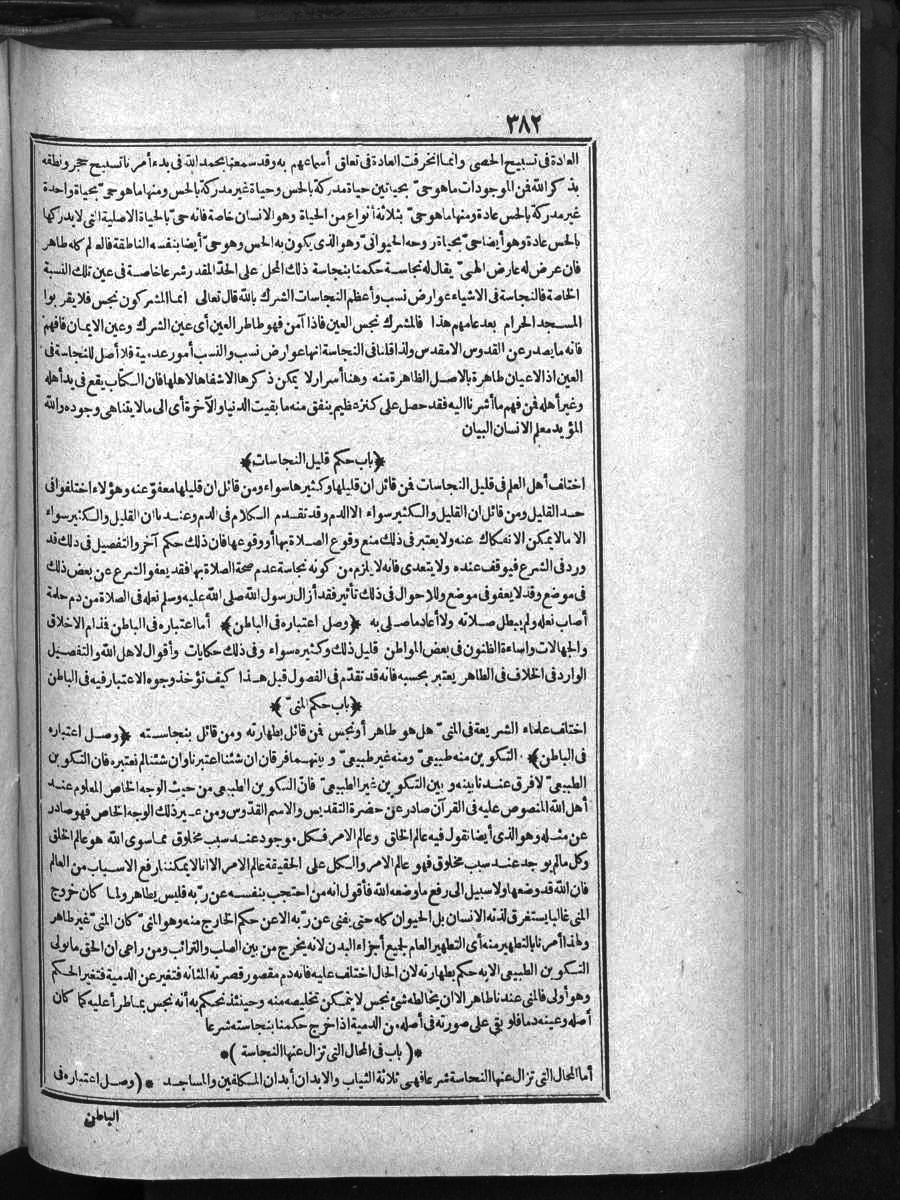 ٣٨٢
العادة في تسبيح الحصى وانما انخرقت العادة في تعلق أسماعهم به وقد سمعنا بحمد الله في بدء أمرنا تسبيح حجر ونطقه
بذكر الله فمن الموجودات ما هو حيّ بحياتين حياة مدركة بالحس وحياة غير مدركة بالحس ومنها ما هو حيّ بحياة واحدة
غير مدركة بالحس عادة ومنها ما هو حيّ بثلاثة أنواع من الحياة وهو الانسان خاصة فانه حيّ بالحياة الاصلية التي لا يدركها
بالحس عادة وهو أيضا حيّ بحياة روحه الحيوانيّ وهو الذي يكون به الحس وهو حيّ أيضا بنفسه الناطقة فالعالم كله طاهر
فان عرض له عارض الهيّ يقال له نجاسة حكمنا بنجاسة ذلك المحل على الحدّ المقدر شرعا خاصة في عين تلك النسبة
الخاصة فالنجاسة في الاشياء عوارض نسب وأعظم النجاسات الشرك بالله قال تعالى انما المشركون نجس فلا يقربوا
المسجد الحرام بعد عامهم هذا فالمشرك نجس العين فاذا آمن فهو طاهر العين أي عين الشرك وعين الايمان فافهم
فانه ما يصدر عن القدوس الا مقدس ولذا قلنا في النجاسة انها عوارض نسب والنسب أمور عدمية فلا أصل للنجاسة في
العين اذ الاعيان طاهرة بالاصل الظاهرة منه وهنا أسرار لا يمكن ذكرها الا شفاها لاهلها فان الكتاب يقع في يد أهله
وغير أهله فمن فهم ما أشرنا اليه فقد حصل على كنز عظيم ينفق منه ما بقيت الدنيا والآخرة أي الى ما لا يتناهى وجوده والله
المؤيد معلم الانسان البيان
﴿باب حكم قليل النجاسات﴾
اختلف أهل العلم في قليل النجاسات فمن قائل ان قليلها وكثيرها سواء ومن قائل ان قليلها معفوّ عنه وهؤلاء اختلفوا في
حد القليل ومن قائل ان القليل والكثير سواء الا الدم وقد تقدم الكلام في الدم وعندنا ان القليل والكثير سواء
الا ما لا يمكن الانفكاك عنه ولا يعتبر في ذلك منع وقوع الصلاة بها أو وقوعها فان ذلك حكم آخر والتفصيل في ذلك قد
ورد في الشرع فيوقف عنده ولا يتعدى فانه لا يلزم من كونه نجاسة عدم صحة الصلاة بها فقد يعفو الشرع عن بعض ذلك
في موضع وقد لا يعفو في موضع وللاحوال في ذلك تأثير فقد أزال رسول الله صلى الله عليه وسلم نعله في الصلاة من دم حلمة
أصاب نعله ولم يبطل صلاته ولا أعاد ما صلى به ﴿وصل اعتباره في الباطن﴾ أما اعتباره في الباطن فذام الاخلاق
والجهالات واساءة الظنون في بعض المواطن قليل ذلك وكثيره سواء وفي ذلك حكايات وأقوال لاهل الله والتفصيل
الوارد في الخلاف في الظاهر يعتبر بحسبه فانه قد تقدّم في الفصول قبل هذا كيف تؤخذ وجوه الاعتبار فيه في الباطن
﴿باب حكم المنيّ﴾
اختلف علماء الشريعة في المنيّ هل هو طاهر أو نجس فمن قائل بطهارته ومن قائل بنجاسته ﴿وصل اعتباره
في الباطن﴾ التكوين منه طبيعيّ ومنه غير طبيعيّ وبينهما فرقان ان شئنا اعتبرناه وان شئنا لم نعتبره فان التكوين
الطبيعيّ لا فرق عندنا بينه وبين التكوين غير الطبيعيّ فان التكوين الطبيعي من حيث الوجه الخاص المعلوم عند
أهل الله المنصوص عليه في القرآن صادر عن حضرة التقديس والاسم القدّوس ومن غير ذلك الوجه الخاص فهو صادر
عن مثله وهو الذي أيضا نقول فيه عالم الخلق وعالم الامر فكل موجود عند سبب مخلوق مما سوى الله هو عالم الخلق
وكل ما لم يوجد عند سبب مخلوق فهو عالم الامر والكل على الحقيقة عالم الامر الا انا لا يمكننا رفع الاسباب من العالم
فان الله قد وضعها ولا سبيل الى رفع ما وضعه الله فأقول انه من احتجب بنفسه عن ربه فليس بطاهر ولما كان خروج
المني غالبا يستغرق لذته الانسان بل الحيوان كله حتى يفنى عن ربه الا عن حكم الخارج منه وهو المنيّ كان المنيّ غير طاهر
ولهذا أمرنا بالتطهير منه أي التطهير العام لجميع أجزاء البدن لانه يخرج من بين الصلب والترائب ومن راعى ان الحق ما تولى
التكوين الطبيعي الا به حكم بطهارته لان الحال اختلف عليه فانه دم مقصور قصرته المثانة فتغير عن الدمية فتغير الحكم
وهو أولى فالمنى عندنا طاهر الا ان يخالطه شيء نجس لا يتمكن تخليصه منه وحينئذ نحكم به أنه نجس بما طرأ عليه كما كان
أصله وعينه دما فلو بقي على صورته في أصله من الدمية اذا خرج حكمنا بنجاسته شرعا
*(باب في المحال التي تزال عنها النجاسة)*
أما المحال التي تزال عنها النجاسة شرعا فهي ثلاثة الثياب والابدان أبدان المكلفين والمساجد *(وصل اعتباره في
الباطن